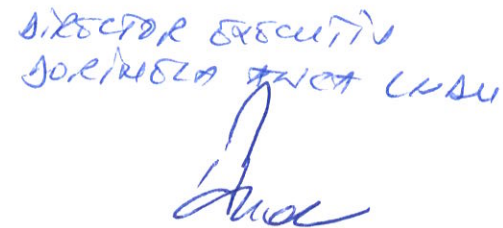 DIRECTOR EXECUTIV
DORINELA ANCA